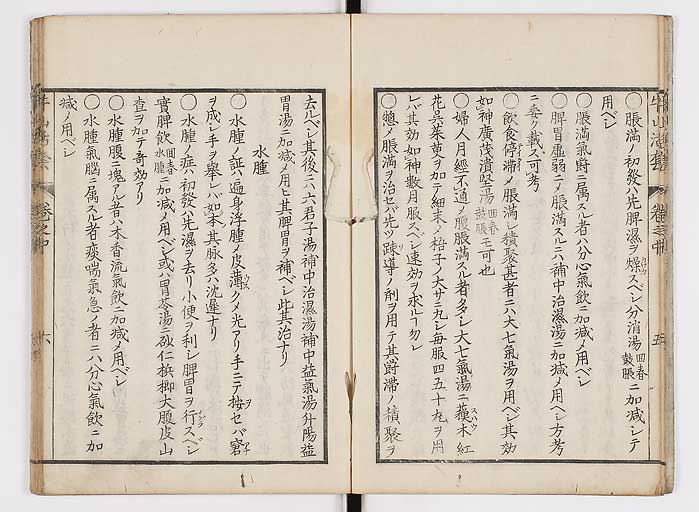 ○脹満ノ初發ハ先脾濕ヲ燥スベシ分消湯回春鼓脹ニ加减シテ
用ベシ
○脹満氣欝ニ属スル者ハ分心氣飲ニ加减ノ用ベシ
○脾胃虚弱ニノ脹満スルニハ補中治濕湯ニ加减ノ用ベシ方考
ニ委ク載ス可考
○飲食停滯ノ脹満シ積聚甚者ニハ大七氣湯ヲ用ベシ其効
如神廣茂潰堅湯回春鼓脹モ可也
○婦人月經不通ノ腹脹満スル者多シ大七氣湯ニ蘓木紅
花呉茱萸ヲ加テ細末ノ梧子ノ大サニ丸シ毎服四五十丸ヲ用
レバ其効如神數月服スベシ速効ヲ求ルヿ勿レ
○惣ノ脹満ヲ治セバ先ツ疎導ノ剤ヲ用テ其欝滯ノ積聚ヲ
去ルベシ其後ニ六君子湯補中治濕湯補中益氣湯升陽益
胃湯ニ加减ノ用ヒ其脾胃ヲ補ベシ此其治ナリ
水腫
○水腫ノ証ハ遍身浮腫ノ皮薄クメ光アリ手ニテ按セバ窘
ヲ成シ手ヲ擧レハ如本其脉多ハ沈遲ナリ
○水腫ノ症ハ初發ハ先濕ヲ去リ小便ヲ利シ脾胃ヲ行スベシ
實脾飲回春水腫ニ加减ノ用ベシ或ハ胃苓湯ニ砂仁檳榔大腹皮山
查ヲ加テ奇効アリ
○水腫腹ニ塊アル者ハ木香流氣飲ニ加减ノ用ベシ
○水腫氣腦ニ属スル者痰喘氣急ノ者ニハ分心氣飲ニ加
减ノ用ベシ